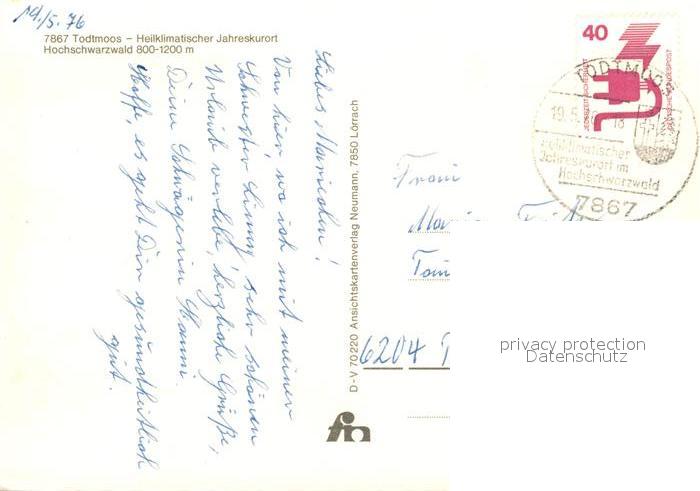 19./5. 76
7867 Todtmoos – Heilklimatischer Jahreskurort
Hochschwarzwald 800-1200 m
Liebes Mariechen!
Von hier, wo ich mit meiner
Schwester sehr schönen
Urlaub verlebe, herzliche Grüße,
Deine Schwägerin Hanni.
Hoffe, es geht Dir gesundheitlich
gut.
D-V 70220 Ansichtskartenverlag Neumann, 7850 Lörrach
fm
40
JEDERZEIT SICHERHEIT
DEUTSCHE BUNDESPOST
TODTMOOS
19.5. 18
Heilklimatischer
Jahreskurort im
Hochschwarzwald
7867
Frau
6204 T
privacy protection
Datenschutz